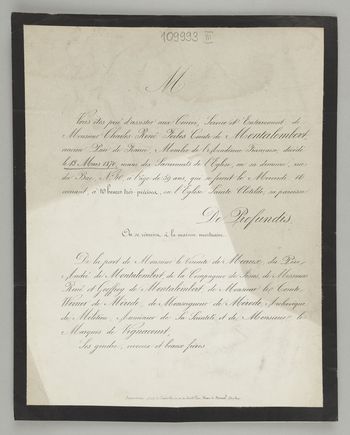 109993 III
M
Vous êtes prié d'assister aux Convoi, Service et Enterrement de
Monsieur Charles René Forbes Comte de Montalembert,
ancien Pair de France, Membre de l'Académie Française, décédé
le 13 Mars 1870, muni des Sacrements de l'Eglise, en sa demeure, rue
du Bac, N° 40, à l'âge de 59 ans, qui se feront le Mercredi 16
courant, à 10 heures très-précises, en l'Eglise Sainte Clotilde, sa paroisse.
De Profundis.
On se réunira à la maison mortuaire.
De la part de Monsieur le Vicomte de Meaux, du Père
André de Montalembert de la Compagnie de Jésus, de Messieurs
René et Geoffroy de Montalembert, de Monsieur le Comte
Werner de Merode, de Monseigneur de Merode, Archevêque
de Mélitène, Aumônier de Sa Sainteté, et de Monsieur le
Marquis de Vignacourt.
Ses gendre, neveux et beaux frères